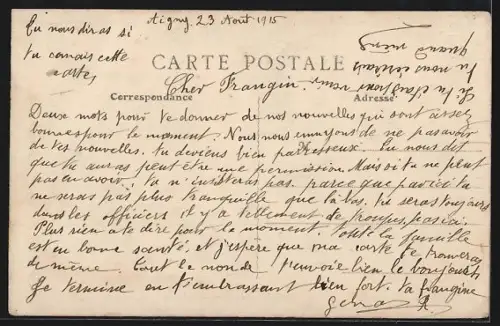 Tu nous diras si
tu connais cette
carte,
Aigny. 23 Août 1915
Si tu n'as pas
tu nous écriras
quand même
CARTE POSTALE
Cher Frangin.
Correspondance
Adresse
Deux mots pour te donner de nos nouvelles qui sont assez
bonnes pour le moment. Nous nous ennuyons de ne pas avoir
de tes nouvelles. tu deviens bien paresseux. Tu nous dit
que tu auras peut être une permission. Mais si tu ne peut
pas en avoir, tu n'insisteras pas. parce que par ici tu
ne seras pas plus tranquille que là bas. tu seras toujours
dans les officiers il y a tellement de troupes, par ici.
Plus rien a te dire pour le moment. Toute la famille
est en bonne santé, et j'espère que ma carte te trouveras
de même. Tout le monde t'envoie bien le bonjour
Je termine en t'embrassant bien fort. ta frangine